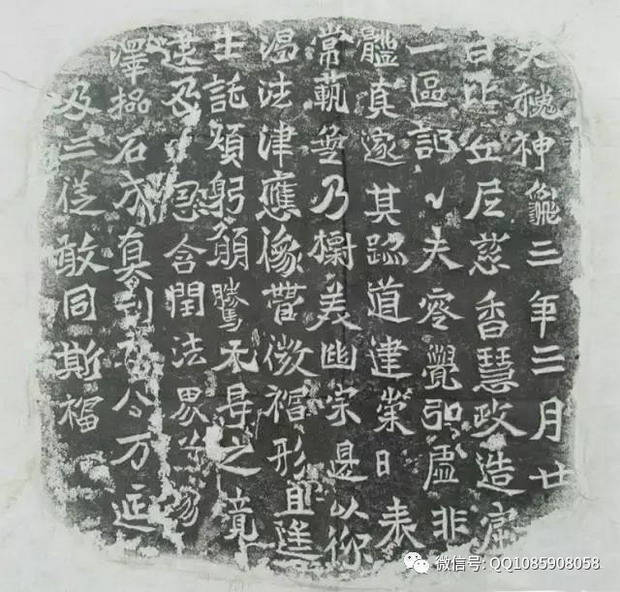 大魏神龜三年三月廿
日比丘尼慈香慧政造窟
一區記之夫零覺弘虛非
體真邃其跡道建崇日表
常範無乃標美幽宗是以仰
渴法津應像營微福形且遙
生託煩躬願騰无㝵之境
逮及恩含潤法界
澤石成真刊八万延
及三從敢同斯福
微信号: QQ1085908058